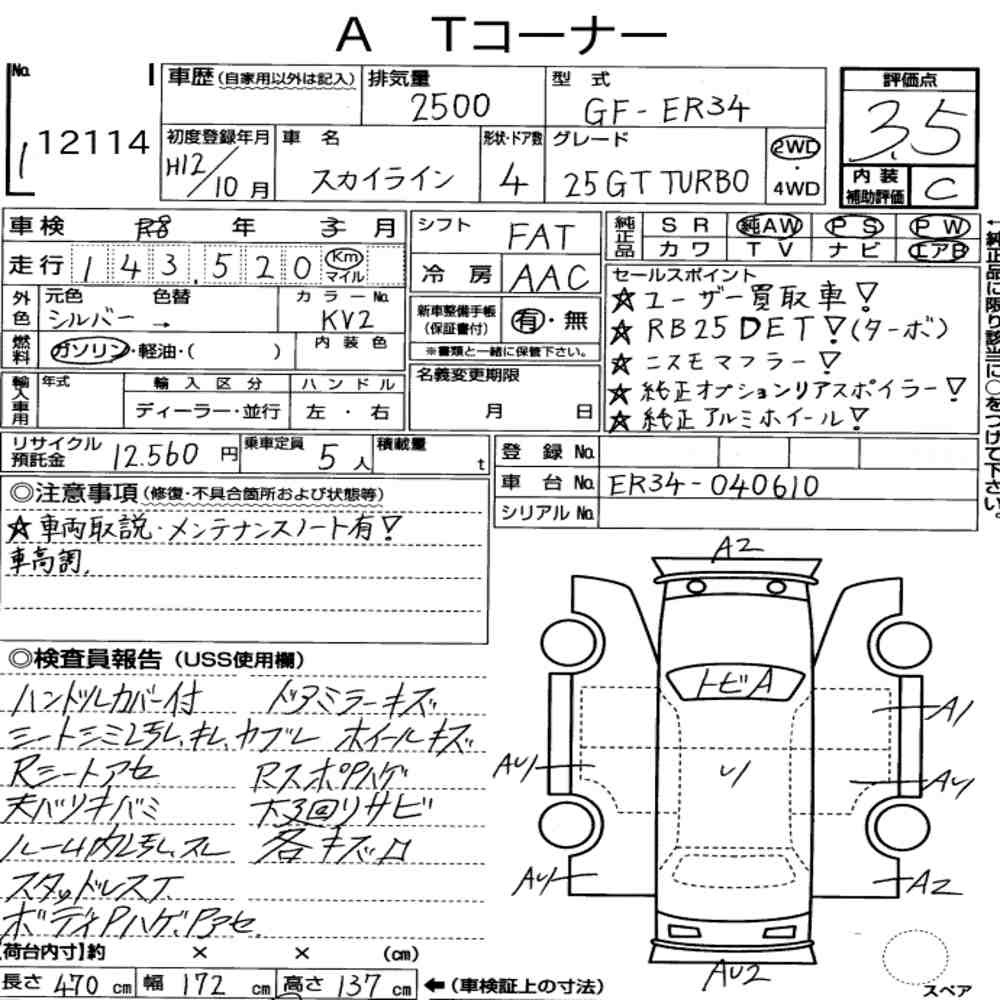 A Tコーナー
No. 1 12114
車歴(自家用以外は記入)
排気量 2500
型式 GF-ER34
評価点 3.5
内装補助評価 C
初度登録年月 H12/10月
車名 スカイライン
形状・ドア数 4
グレード 25GT TURBO
2WD・4WD
車検 R8年 3月
走行 143,520 Km マイル
外色 元色 シルバー → 色替
カラーNo. KV2
燃料 ガソリン・軽油・( )
内装色
輸入車用 年式
輸入区分 ディーラー・並行
ハンドル 左・右
シフト FAT
冷房 AAC
新車整備手帳(保証書付) 有・無
※書類と一緒に保管下さい。
名義変更期限 月 日
純正品 SR 純AW PS PW
カワ TV ナビ エアB
←純正品に限り該当に○をつけて下さい。
セールスポイント
☆ユーザー買取車!
☆RB25DET!(ターボ)
☆ニスモマフラー!
☆純正オプションリアスポイラー!
☆純正アルミホイール!
リサイクル預託金 12.560円
乗車定員 5人
積載量 t
登録No.
車台No. ER34-040610
シリアルNo.
◎注意事項(修復・不具合箇所および状態等)
☆車両取説・メンテナンスノート有!
車高調.
◎検査員報告(USS使用欄)
ハンドルカバー付 ドアミラーキズ
シートシミヨゴレ、キレ、ヤブレ ホイールキズ
Rシートアセ RスポPハゲ
天バリキバミ 下回りサビ
ルーム内ヨゴレ、スレ 各キズ凹
スタッドレスT
ボディPハゲ、Pアセ
A2
トビA
A1
AU1
U1
AU1
AU1
A2
AU2
スペア
【荷台内寸】約 × × (cm)
長さ 470 cm 幅 172 cm 高さ 137 cm ←(車検証上の寸法)